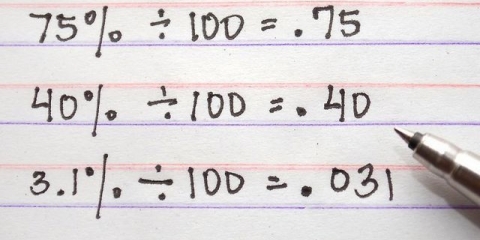 75% ÷ 100 = .75
40% ÷ 100 = .40
3.1% ÷ 100 = .031